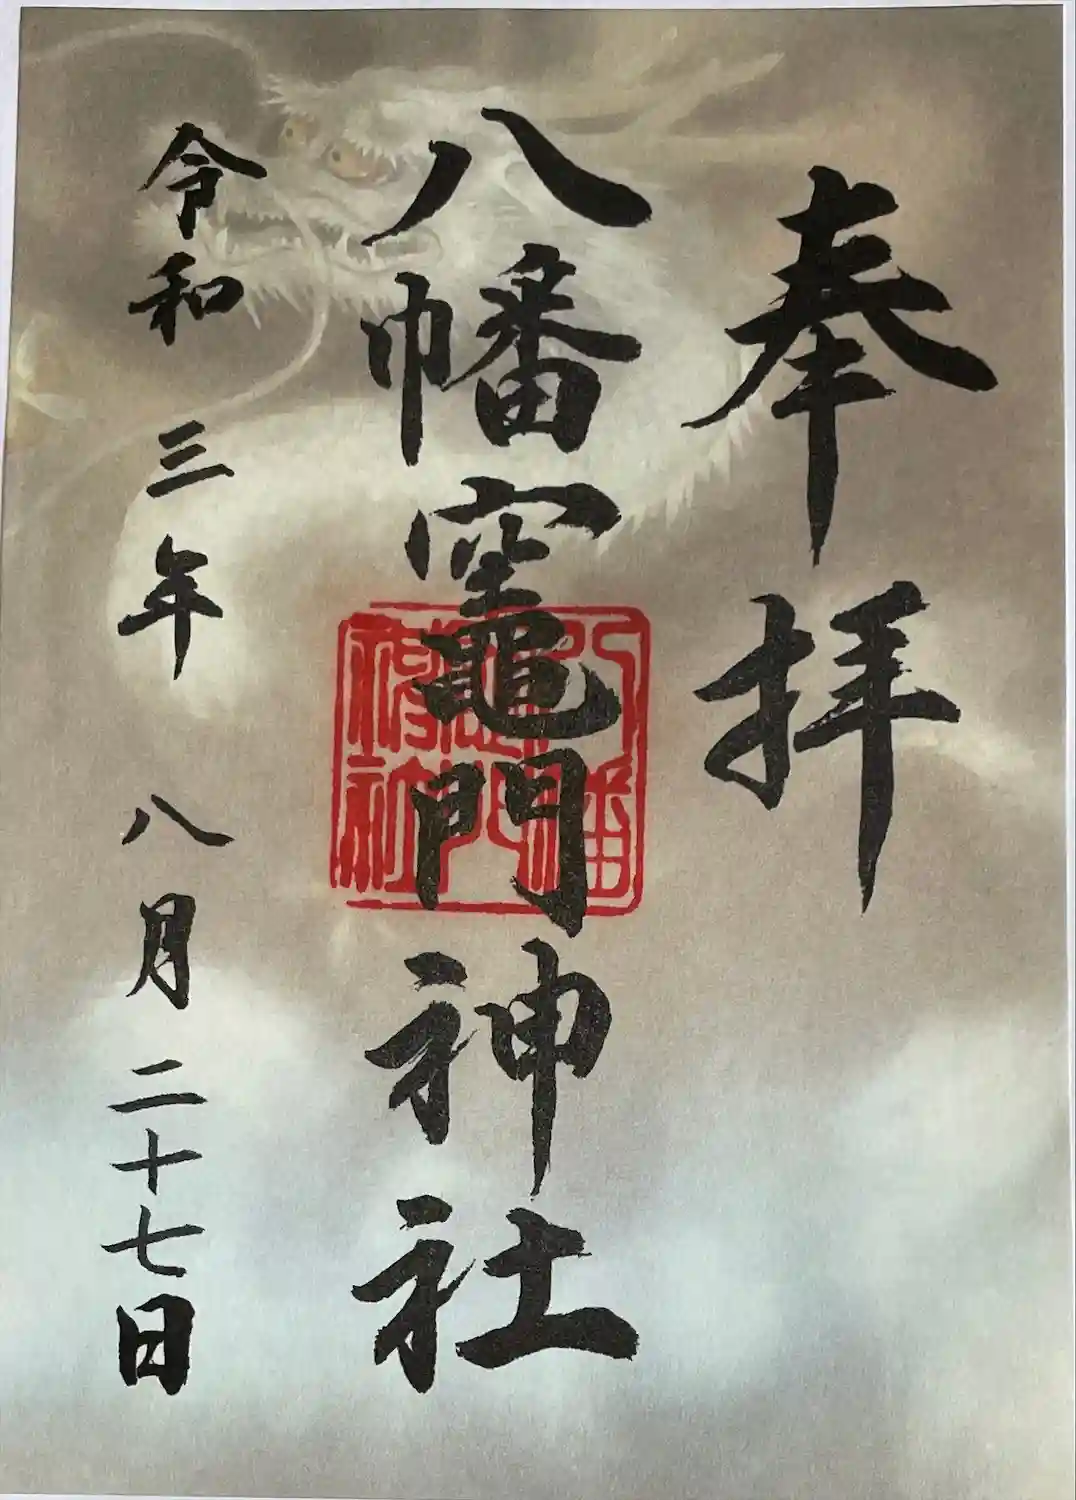 奉拝
八幡竈門神社
八幡竈門神社
令和三年八月二十七日